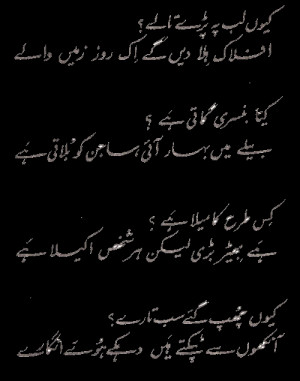 کیوں لب پہ پڑے تالے؟
افلاک ہلا دیں گے اِک روز زمیں والے
کیا بنسری گاتی ہے؟
بیلے میں بہار آئی ساجن کو بُلاتی ہے
کِس طرح کا میلا ہے؟
ہے بھیڑ بڑی لیکن ہر شخص اکیلا ہے
کیوں چھپ گئے سب تارے؟
آنکھوں سے ٹپکتے ہیں دہکے ہوئے انگارے